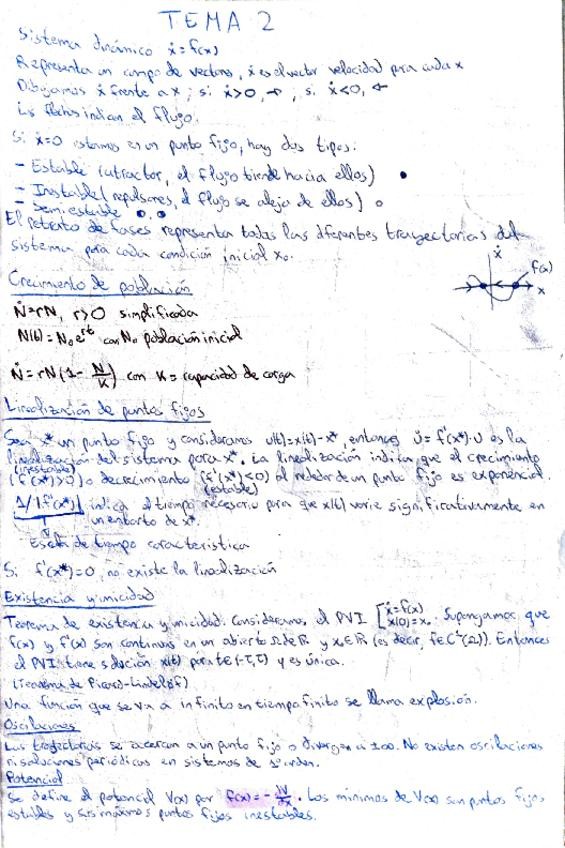 TEMA 2
Sistema dinámico ẋ=f(x)
Representa un campo de vectores, ẋ es el vector velocidad para cada x
Dibujamos ẋ frente a x; si ẋ>0, →; si ẋ<0, ←
Las flechas indican el flujo.
Si ẋ=0 estamos en un punto fijo, hay dos tipos:
- Estable (atractor, el flujo tiende hacia ellos) ●
- Inestable (repulsores, el flujo se aleja de ellos) ○
- Semiestable
El retrato de fases representa todas las diferentes trayectorias del
sistema para cada condición inicial x₀.
ẋ
f(x)
x
Crecimiento de población
Ṅ=rN, r>0 simplificada
N(t)=N₀e^rt con N₀ población inicial
Ṅ=rN(1-N/K) con K=capacidad de carga
Linealización de puntos fijos
Sea x* un punto fijo y consideramos u(t)=x(t)-x*, entonces u̇=f'(x*)·u es la
linealización del sistema para x*. La linealización indica que el crecimiento
(inestable)
(f'(x*)>0) o decrecimiento (f'(x*)<0) alrededor de un punto fijo es exponencial.
(estable)
1/|f'(x*)| indica el tiempo necesario para que x(t) varíe significativamente en
un entorno de x*.
Escala de tiempo característica
Si f'(x*)=0, no existe la linealización
Existencia y unicidad
Teorema de existencia y unicidad. Consideramos el PVI [ẋ=f(x) x(0)=x₀. Supongamos que
f(x) y f'(x) son continuas en un abierto Ω de ℝ y x₀∈ℝ (es decir, f∈C¹(Ω)). Entonces
el PVI tiene solución x(t) para t∈(-τ,τ) y es única.
(Teorema de Picard-Lindelöf)
Una función que se va a infinito en tiempo finito se llama explosión.
Oscilaciones
Las trayectorias se acercan a un punto fijo o divergen a ±∞. No existen oscilaciones
ni soluciones periódicas en sistemas de 1º orden.
Potencial
Se define el potencial V(x) por f(x)=-dV/dx. Los mínimos de V(x) son puntos fijos
estables y sus máximos puntos fijos inestables.